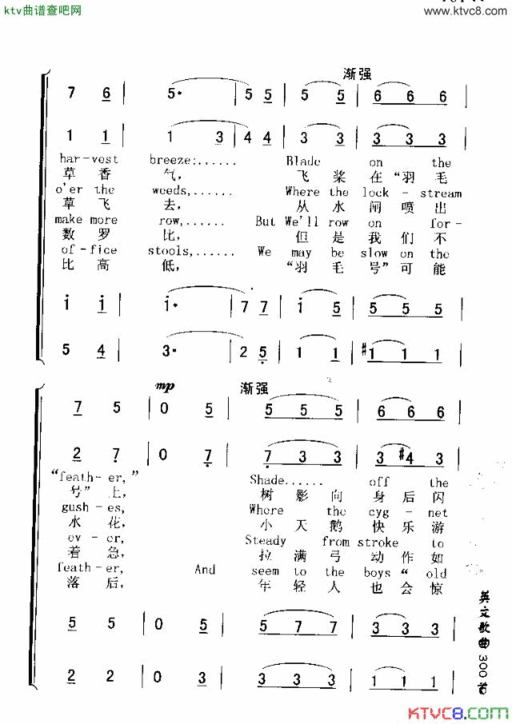 ktv曲谱查吧网
www.ktvc8.com
渐强
7 6 | 5· (5 5) | 5 5 5 | 6 6 6
1 1 | 1 3 (4 4) | 3 3 3 | 3 3 3
har-vest breeze:...... Blade on the
草香气， 飞桨在“羽毛
o'er the weeds,...... Where the lock-stream
草飞去， 从水闸喷出
make more row,...... But We'll row on for-
数罗比， 但是我们不
of-fice stools,...... We may be slow on the
比高低， “羽毛号”可能
i i | i· (7 7) | i i 5 | 5 5 5
5 4 | 3· (2 5) | 1 1 1 | #1 1 1
mp 渐强
7 5 | 0 5 | 5 5 5 | 6 6 6
2 7 | 0 7 | 7 3 3 | 3 #4 3
“feath-er,” Shade...... off the
号”上， 树影向身后闪
gush-es, Where the cyg-net
水花， 小天鹅快乐游
ev-er, Steady from stroke to
着急， 拉满弓动作如
feath-er, And seem to the boys “old
落后， 年轻人也会惊
5 5 | 0 5 | 5 7 7 | 3 3 3
2 2 | 0 3 | 3 3 3 | 1 1 1
英文歌曲300首
KTVC8.com